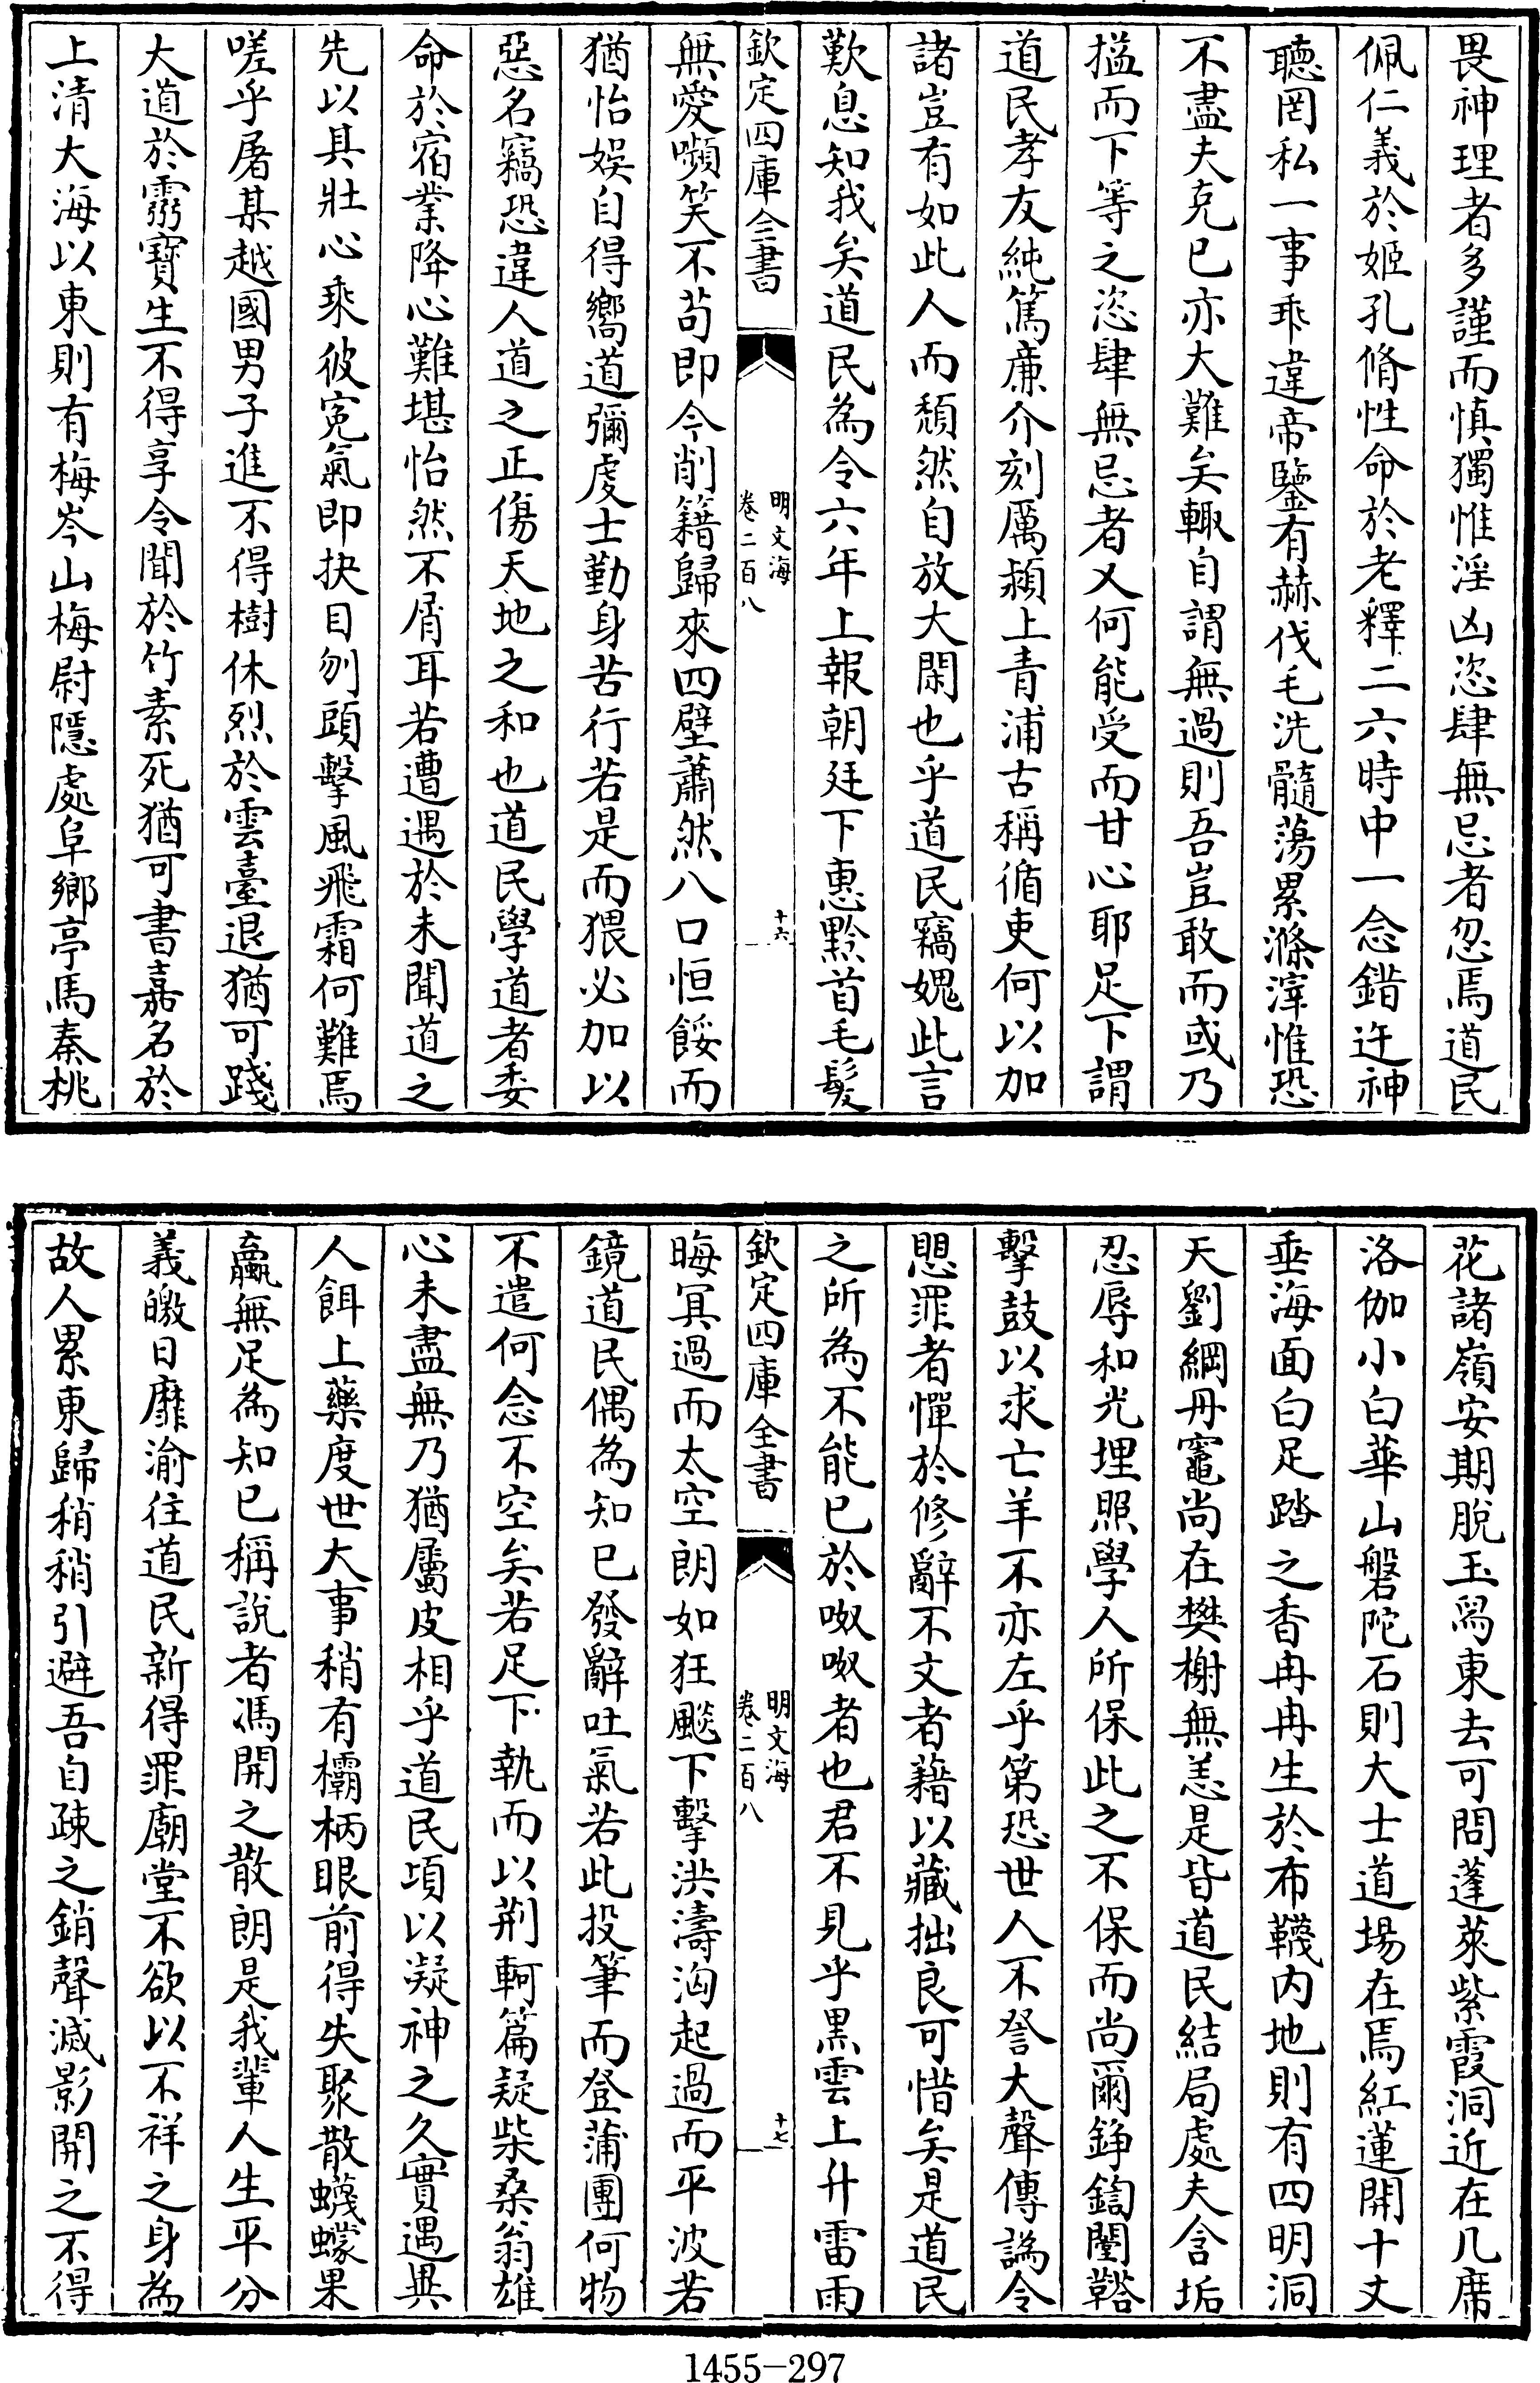 畏神理者多謹而慎獨惟淫凶恣肆無忌者忽焉道民
佩仁義於姬孔脩性命於老釋二六時中一念錯迕神
聽罔私一事乖違帝鑒有赫伐毛洗髓蕩累滌滓惟恐
不盡夫克已亦大難矣輙自謂無過則吾豈敢而或乃
搵而下等之恣肆無忌者又何能受而甘心耶足下謂
道民孝友純篤廉介刻厲潁上青浦古稱循吏何以加
諸豈有如此人而頹然自放大閑也乎道民竊媿此言
歎息知我矣道民為令六年上報朝廷下惠黔首毛髮
欽定四庫全書
明文海
卷二百八
十六
無愛嚬笑不苟即今削籍歸來四壁蕭然八口恒餒而
猶怡娱自得嚮道彌虔士勤身苦行若是而猥必加以
惡名竊恐違人道之正傷天地之和也道民學道者委
命於宿業降心難堪怡然不屑耳若遭遇於未聞道之
先以具壯心乘彼寃氣即抉目刎頭擊風飛霜何難焉
嗟乎屠某越國男子進不得樹休烈於雲臺退猶可踐
大道於靈寶生不得享令聞於竹素死猶可書嘉名於
上清大海以東則有梅岑山梅尉隱處阜鄉亭馬秦桃
花諸嶺安期脫玉舄東去可問蓬萊紫霞洞近在几席
洛伽小白華山磐陀石則大士道場在焉紅蓮開十丈
垂海面白足踏之香冉冉生於布韈内地則有四明洞
天劉綱丹竈尚在樊榭無恙是皆道民結局處夫含垢
忍辱和光埋照學人所保此之不保而尚爾錚鍧闛鞳
擊鼓以求亡羊不亦左乎第恐世人不詧大聲傳譌令
愳罪者憚於修辭不文者藉以藏拙良可惜矣是道民
之所為不能已於呶呶者也君不見乎黒雲上升雷雨
欽定四庫全書
明文海
卷二百八
十七
晦冥過而太空朗如狂飈下擊洪濤洶起過而平波若
鏡道民偶為知已發辭吐氣若此投筆而登蒲團何物
不遣何念不空矣若足下執而以荆軻篇疑柴桑翁雄
心未盡無乃猶屬皮相乎道民頃以凝神之久實遇異
人餌上藥度世大事稍有欛柄眼前得失聚散蠛蠓果
蠃無足為知已稱說者馮開之散朗是我輩人生平分
義皦日靡渝住道民新得罪廟堂不欲以不祥之身為
故人累東歸稍稍引避吾自疎之銷聲滅影開之不得
1455-297